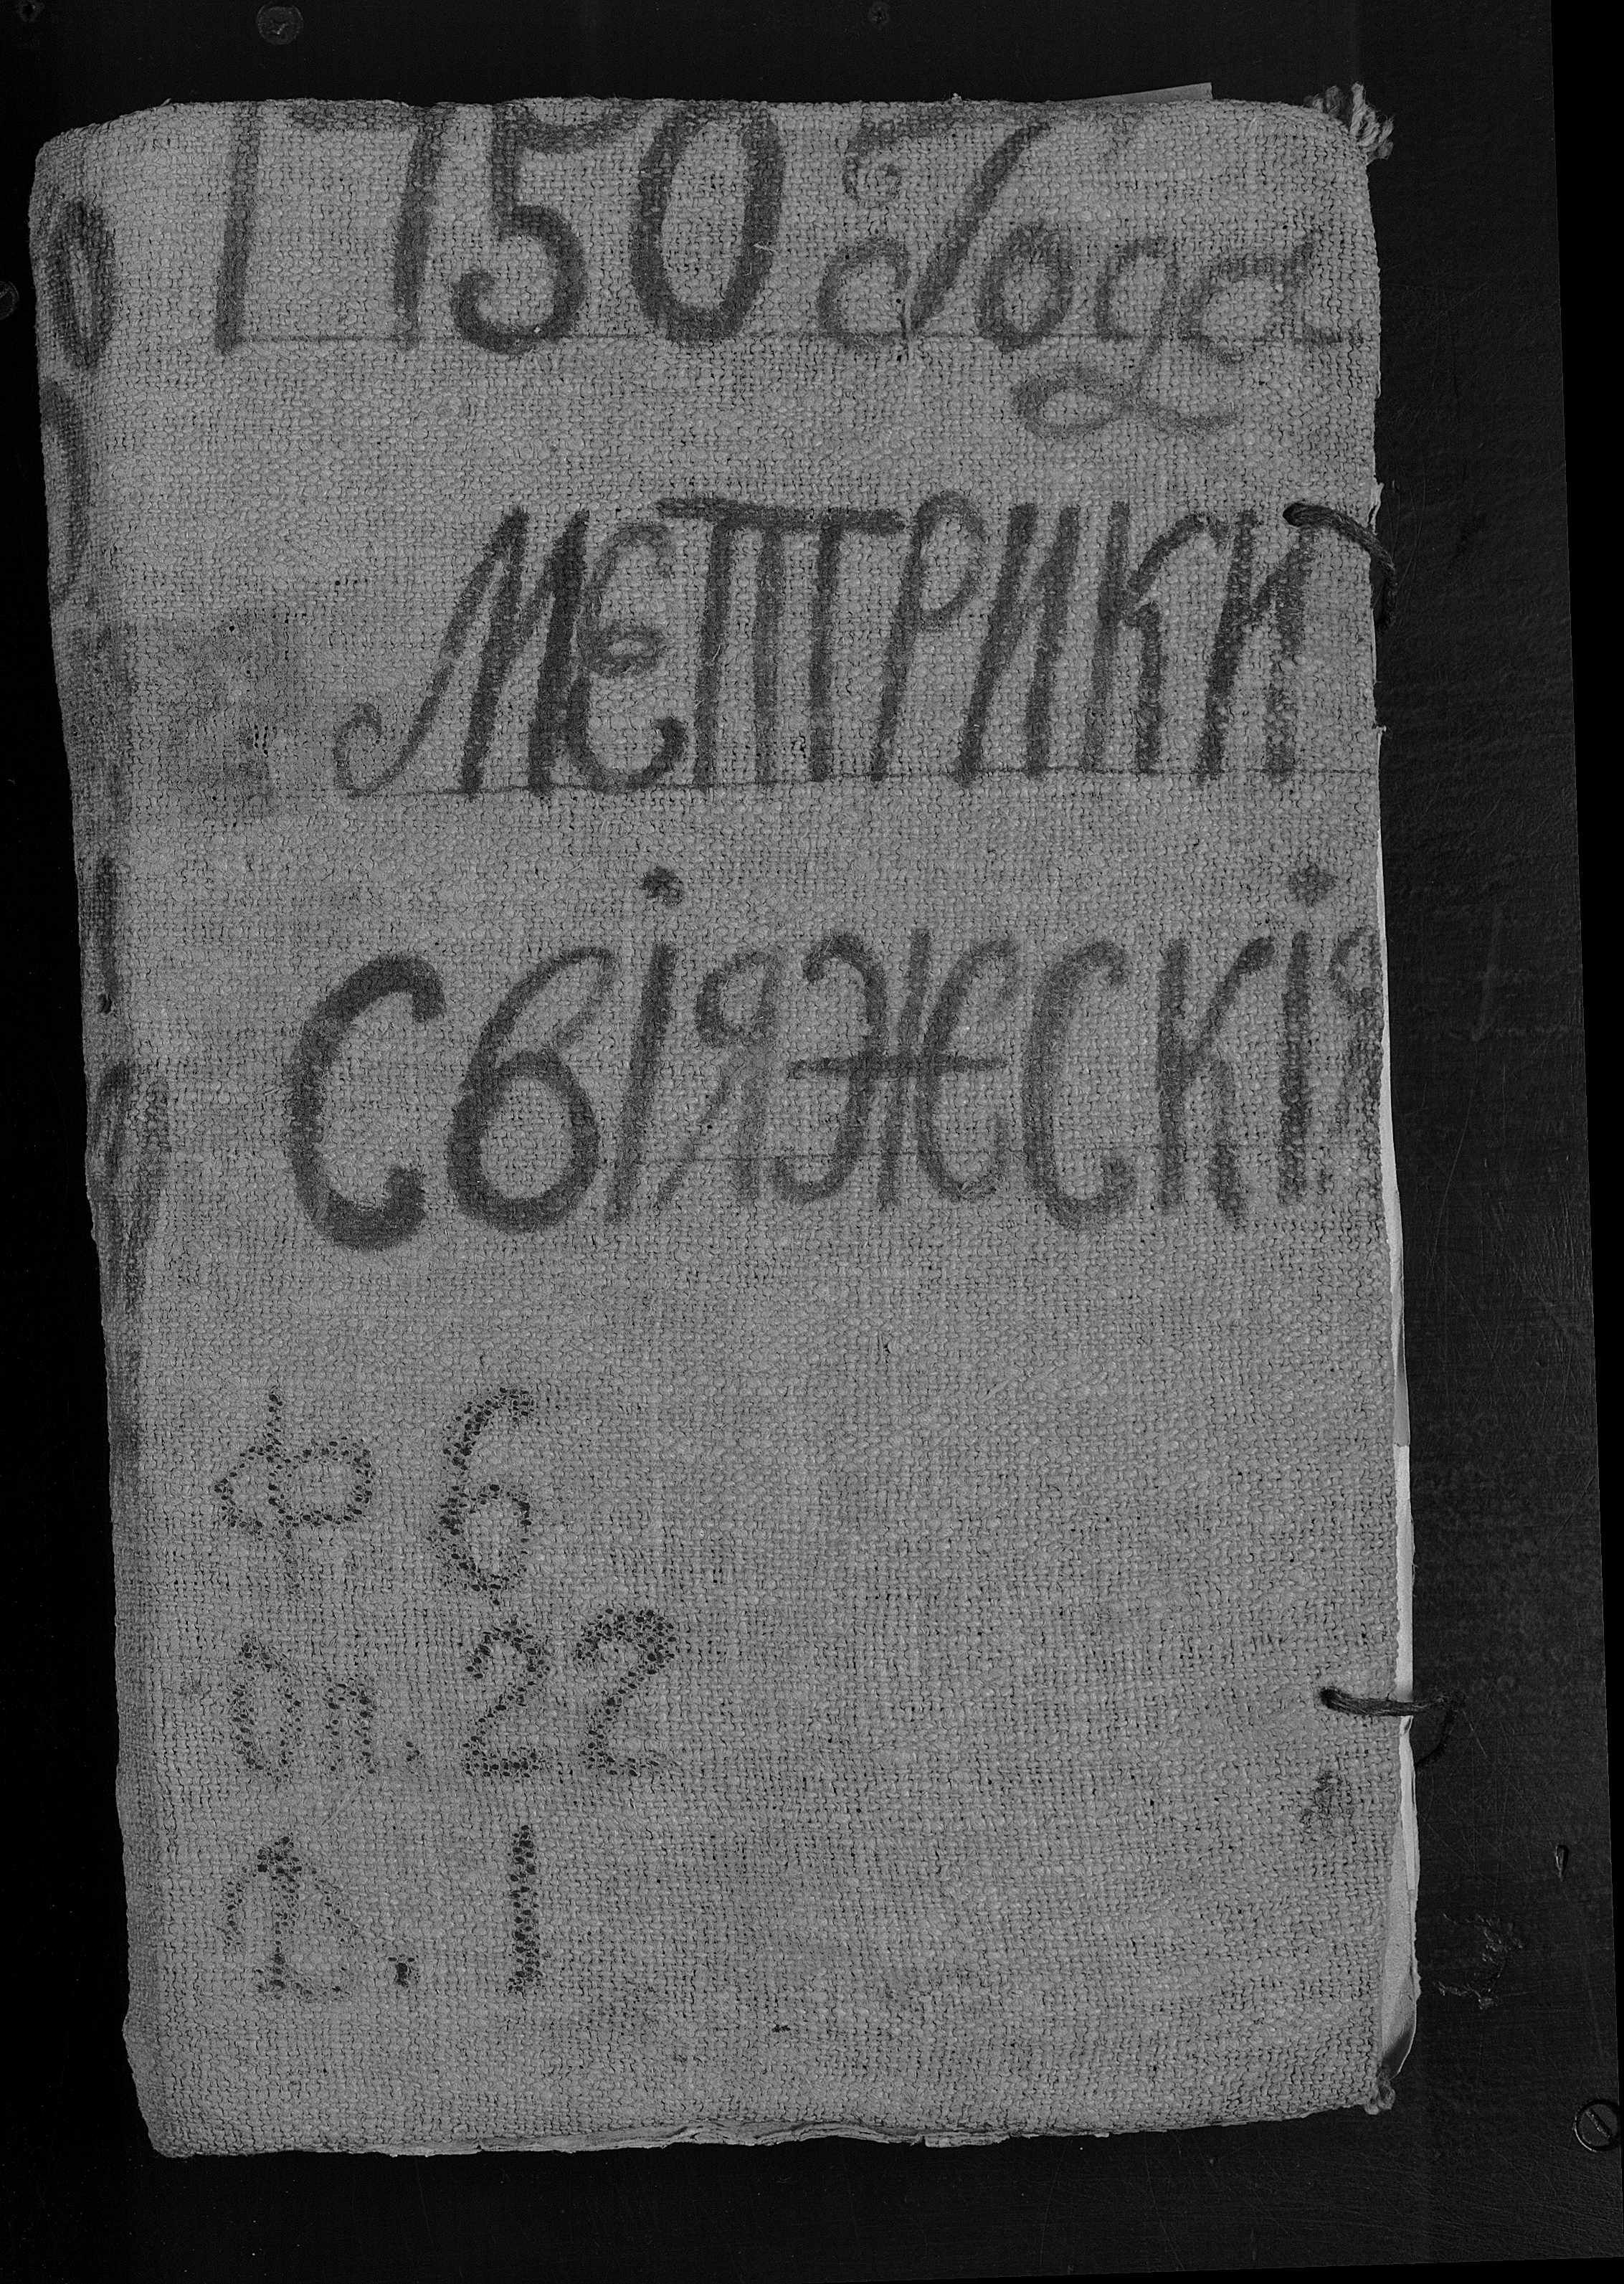 1750 Года
МЕТРИКИ
СВІЯЖСКІЯ
ф 6
оп. 22
Д. 1